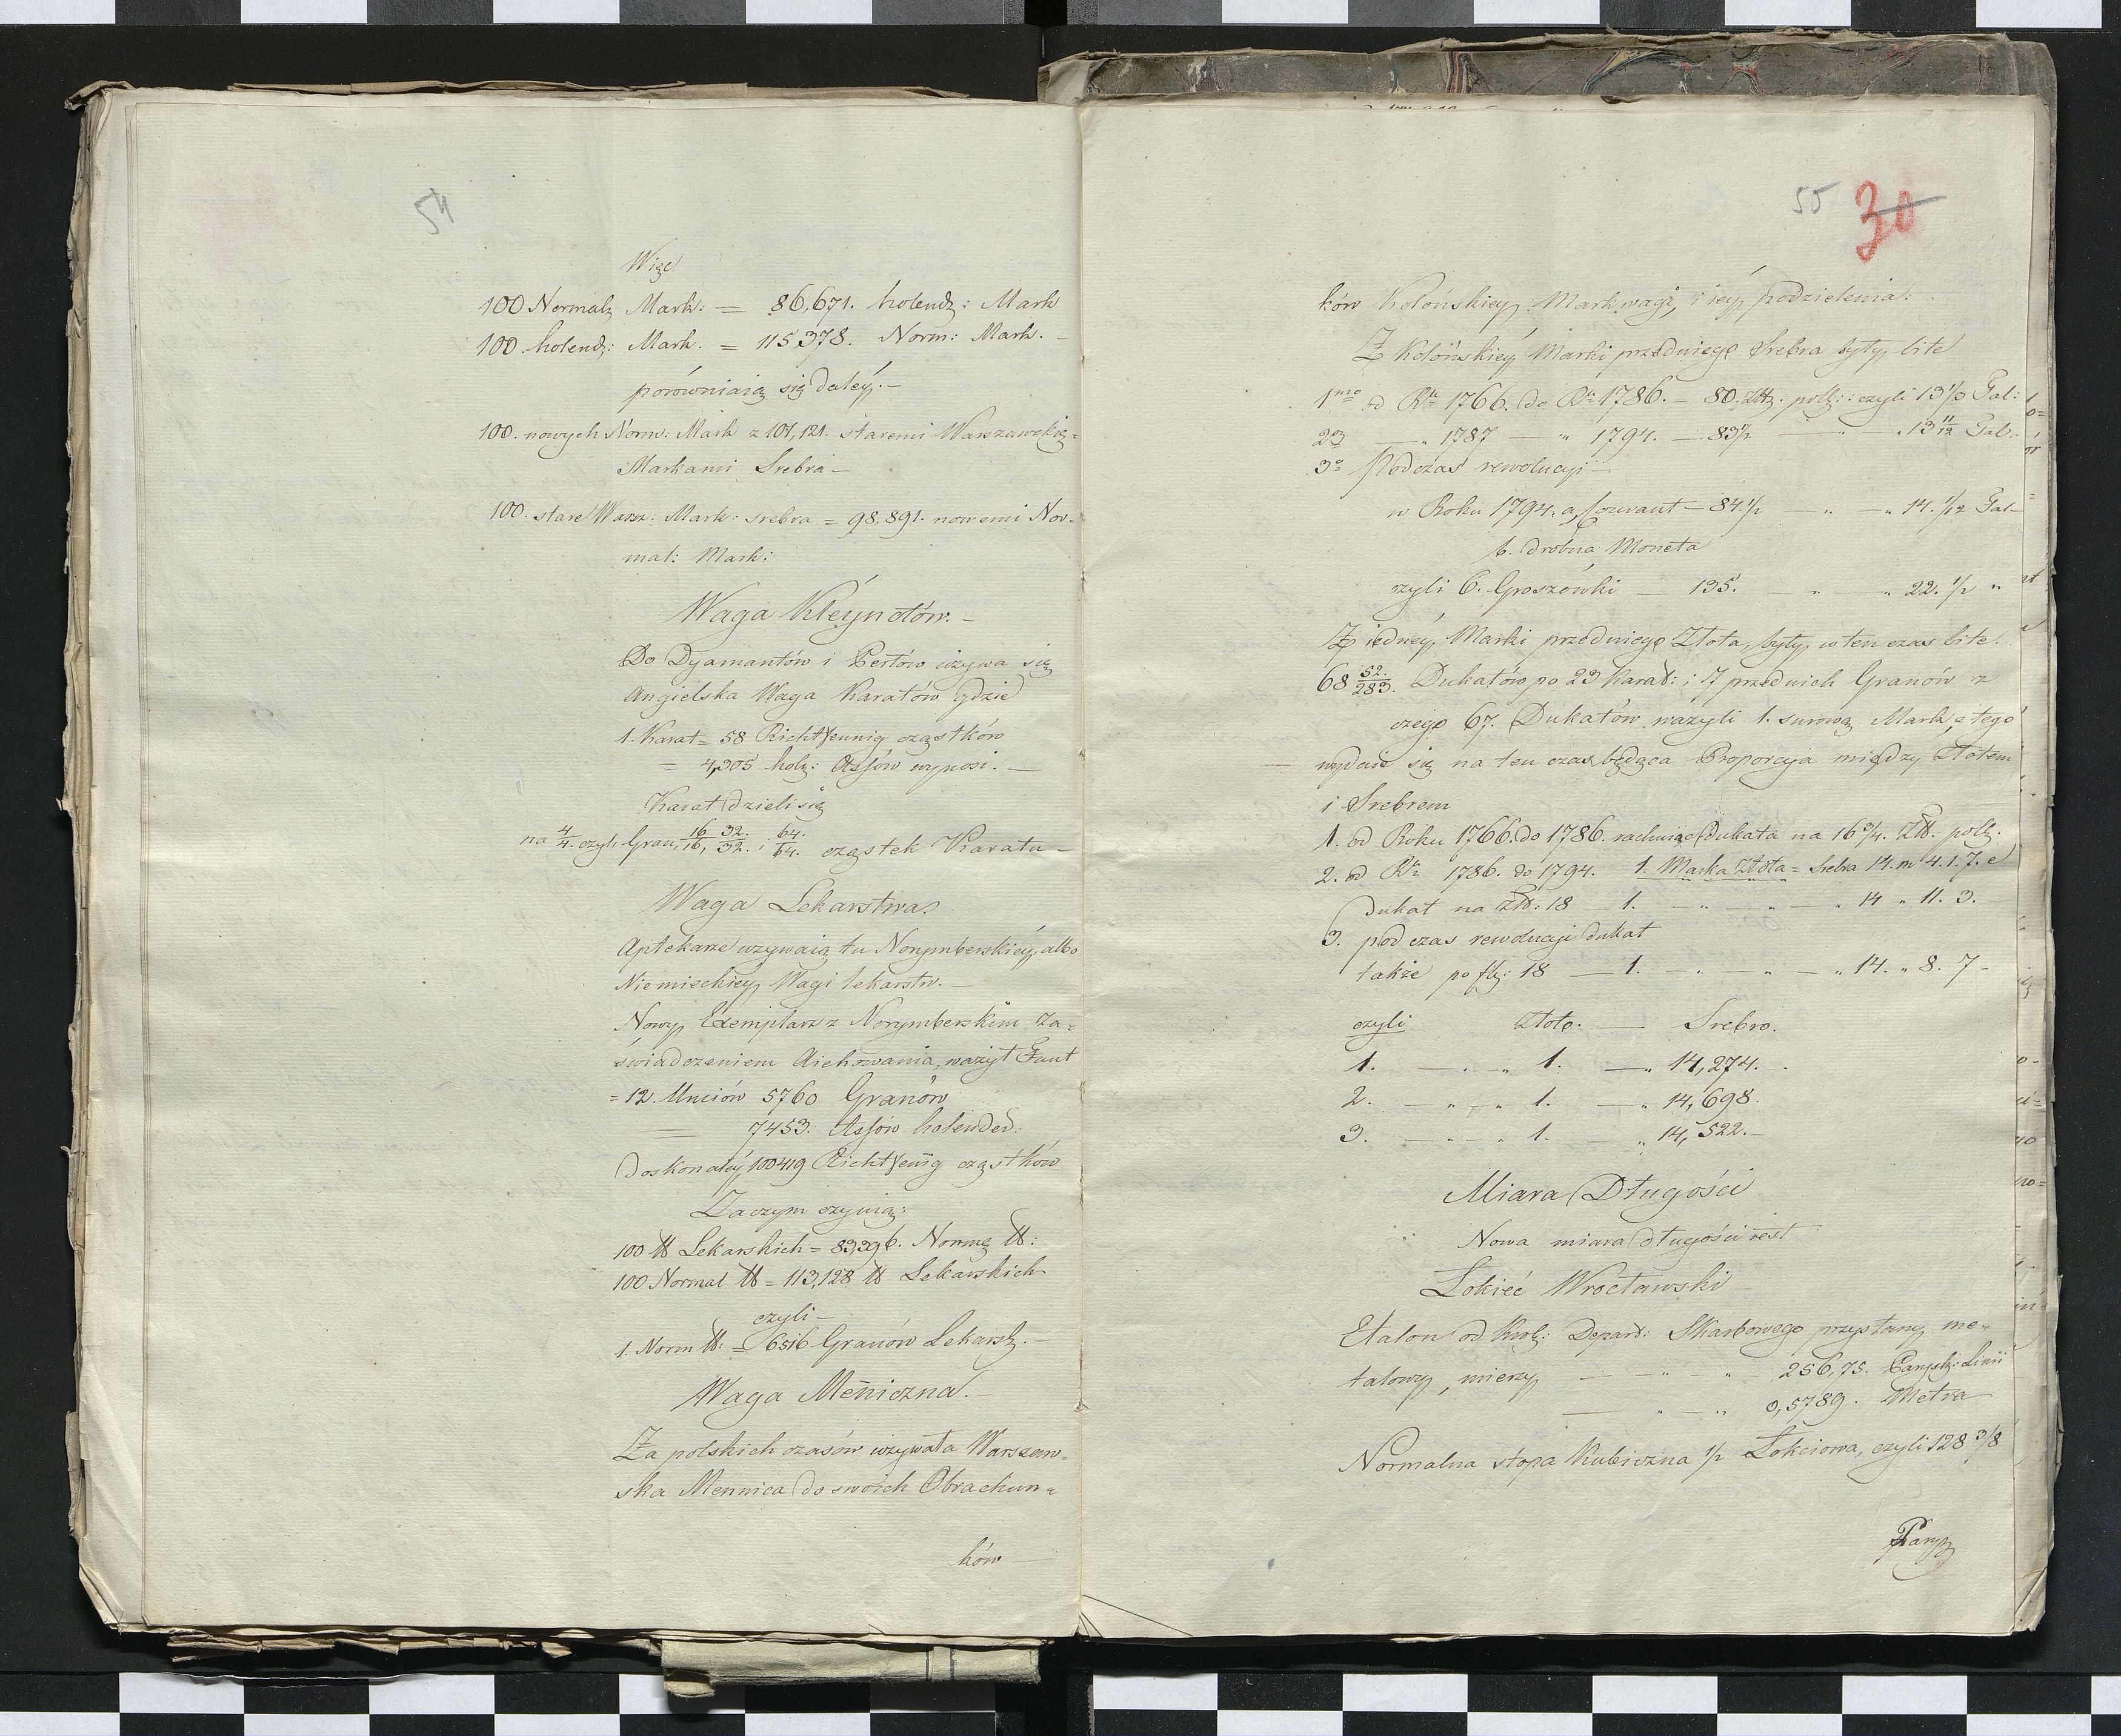 54
Więc
100 Normalȝ Mark: = 86,671. holendȝ: Mark
100. holendȝ: Mark. = 115378. Norm: Mark. –
porówniaią się daléy. –
100. nowych Norm: Mark z 101,121. staremi Warszawskie=
Markami Srebra –
100. stare Warsz: Mark: srebra = 98,891. nowemi Nor=
mal: Mark:
Waga Kleynotów. –
Do Dyamantów i Perłów używa się
Angielska Waga Karatów gdzie
1. Karat = 58 Richtfennig cząstków
= 4,305 holȝ: Assów wynosi. –
Karat dzieli się
na 4/4. czyli Gran, 16/16, 32/32. i 64/64. cząstek Karatu –
Waga Lekarstwa.
Aptekarze używaią tu Norymberskiéy, albo
Niemieckiey Wagi lekarstw. –
Nowy Exemplarz z Norymberskim Za=
świadczeniem Aichowania, ważył Funt
= 12. Unciów 5760 Granów
= 7453. Assów holended:
doskonaléy 100419 Richtfenig cząstków
Zaczym czynią:
100 ℔ Lekarskich = 88,396. Normȝ ℔:
100 Normal ℔ = 113,128 ℔ Lekarskich
czyli –
1. Norm ℔: = 6516 Granów Lekarsȝ. –
Waga Meniczna. –
Za polskich czasów używała Warszaw=
ska Mennica do swoich Obrachun=
ków
55 30
ków Kolońskiey Markwagi, i iéy podzielenia.
Z Kolońskiéy Marki przedniego Srebra były bite
1mo od Rku 1766. do Rku 1786. – 80. Złtȝ. polȝ: czyli 13 1/3 Tal:
2do — „ 1787 — „ 1794. – 83 1/2 — „ — „ 13 11/12 Tal:
3o Podczas rewolucyi –
w Roku 1794. a, Courant – 84. 1/2 — „ — „ 14. 1/12 Tal–
b. drobna Moneta
czyli 6. Groszówki — 135. — „ — „ 22. 1/2 „
Z iednéy Marki przedniego Złota, były w ten czas bite.
68 52/283. Dukatów po 23 Karat: i 7 przednich Granów z
czego 67. Dukatów ważyli 1. surową Markę, z tego
wydaie się na ten czas będąca Proporcyja między Złotem
i Srebrem
1. od Roku 1766. do 1786. rachuiąc Dukata na 16 3/4. Złł. polȝ.
2. od Rku 1786. do 1794. 1. Marka Złota = Srebra 14. m 4. 1. 7. e
Dukat na Złł: 18 — 1. — „ — „ — „ 14 „ 11. 3.
3. pod czas rewolucyi dukat
także po flȝ: 18 — 1. — „ — „ — „ 14. „ 8. 7 –
czyli Złoto. — Srebro.
1. — „ „ 1. — „ 14,274. –
2. — „ „ 1. — „ 14,698.
3. — „ „ 1. — „ 14,522. –
Miara Długości
Nowa miara długości iest
Łokieć Wrocławski
Etalon od Król: Depart: Skarbowego przysłany me=
talowy, mierzy — „ — „ – 256,75. Paryskȝ: Linii
— „ — „ 0,5789. Metra
Normalna stopa Kubiczna 1/2 Łokciowa, czyli 128 3/8
Paryȝ